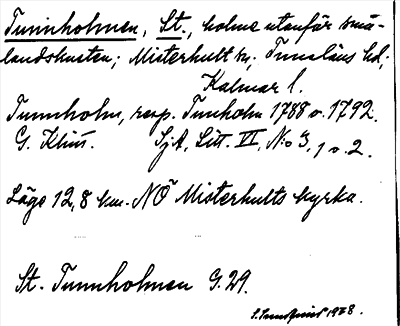 Tunnholmen, St., holme utanför små-
landskusten; Misterhult sn; Tunaläns hd;
Kalmar l.
Tunnholm, resp. Tunholm 1788 o. 1792.
G. Klint. SjA, Litt. VI, No 3, 1 o. 2.
Läge 12,8 km. NÖ Misterhults kyrka.
St. Tunnholmen G. 29.
1928.